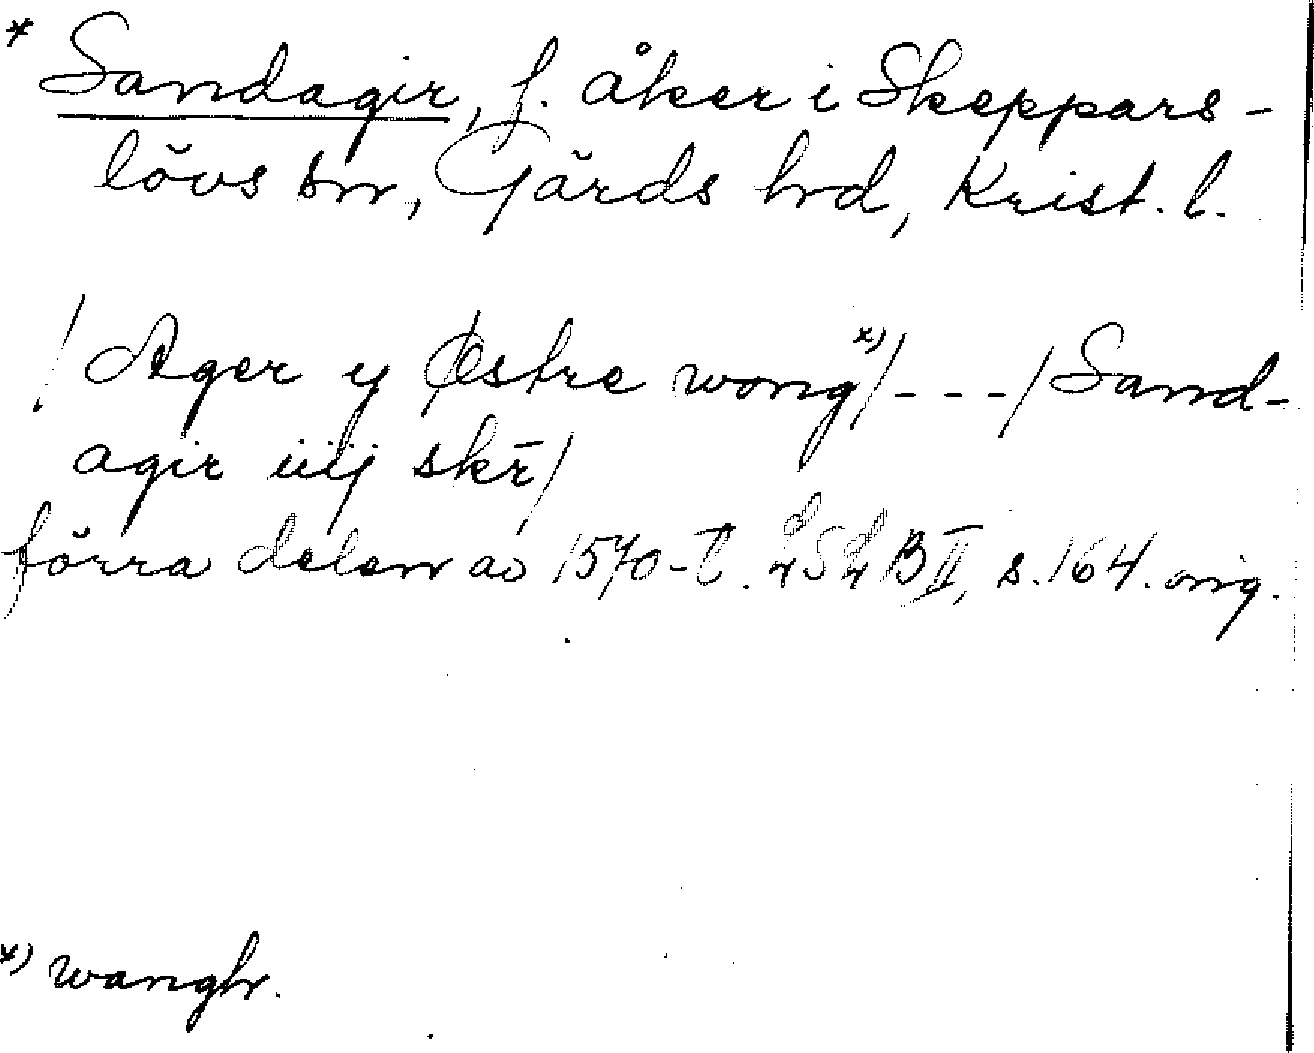 * Sandagir, f. åker i Skeppars-
lövs sn, Gärds hd, Krist. l.
/ Ager y Østre wong *) / - - - / Sand-
agir iiij skr̄ /
förra delen av 1570-t. LSLB II, s. 164. orig.
*) wangh.